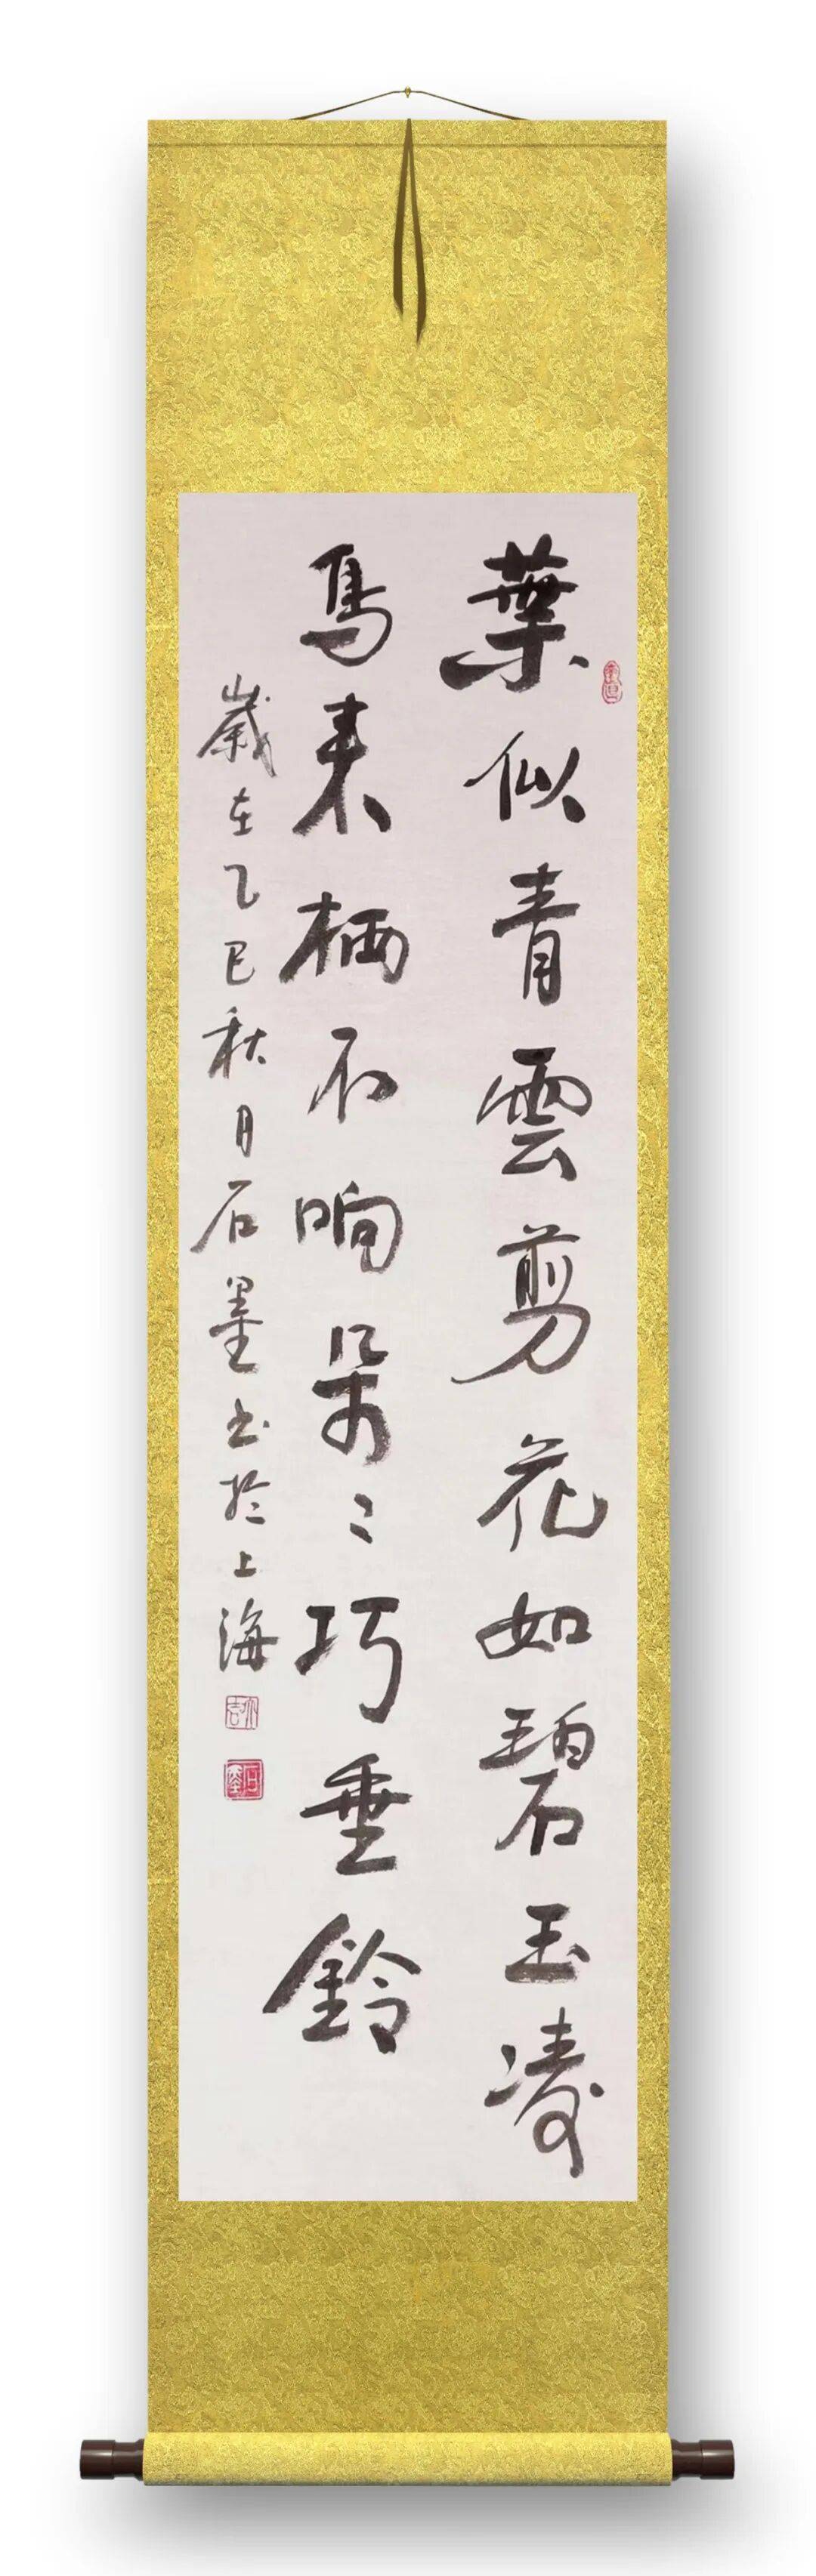 葉似青雲剪花如碧玉凌
鳥来栖不响朵々巧垂鈴
歲在乙巳秋月石墨书於上海